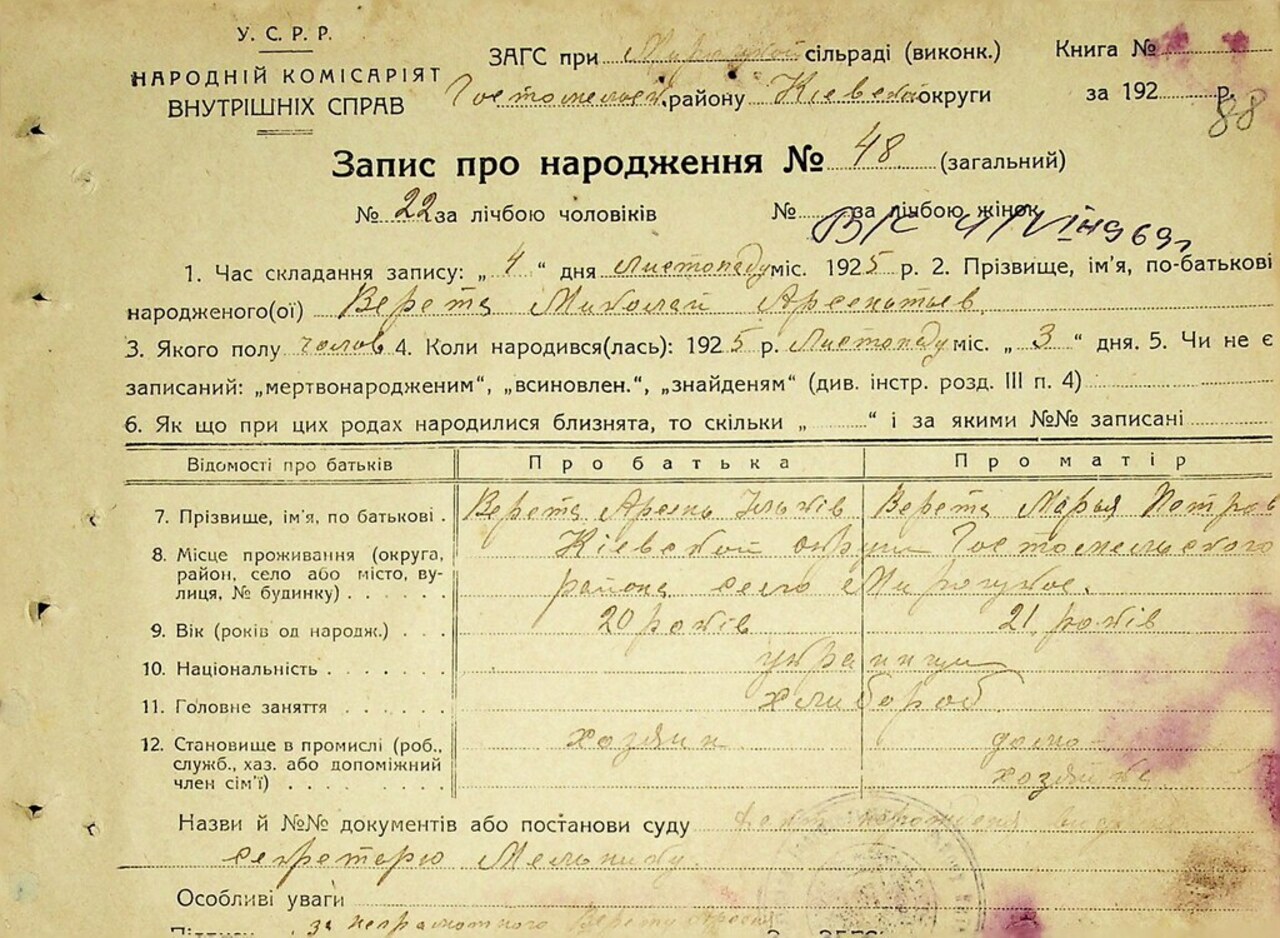 У. С. Р. Р.
НАРОДНІЙ КОМІСАРІЯТ
ВНУТРІШНІХ СПРАВ
ЗАГС при сільраді (виконк.)
району Кіевской округи
Книга №
за 192 р.
88
Запис про народження № 48 (загальний)
№ 22 за лічбою чоловіків № за лічбою жінок
1. Час складання запису: „ 4 “ дня Листопаду міс. 1925 р. 2. Прізвище, ім'я, по-батькові
народженого(ої) Верета Миколай Арсентьев
3. Якого полу чолов 4. Коли народився(лась): 1925 р. Листопаду міс. „ 3 “ дня. 5. Чи не є
записаний: „мертвонародженим“, „всиновлен.“, „знайденям“ (див. інстр. розд. III п. 4)
6. Як що при цих родах народилися близнята, то скільки „ “ і за якими №№ записані
Відомості про батьків Про батька Про матір
7. Прізвище, ім'я, по батькові . Верета Ільків Верета Марья Петров
8. Місце проживання (округа, район, село або місто, вулиця, № будинку) Кіевской округи Гостомельского
района село
9. Вік (років од народж.) . . . 20 років 21 років
10. Національність . . . . . . . українци
11. Головне заняття . . . . . . хлибороб
12. Становище в промислі (роб., служб., хаз. або допоміжний член сім'ї) хозяин домо-
хозяйка
Назви й №№ документів або постанови суду
секретарю Мельнику.
Особливі уваги
за неграмотного Верету